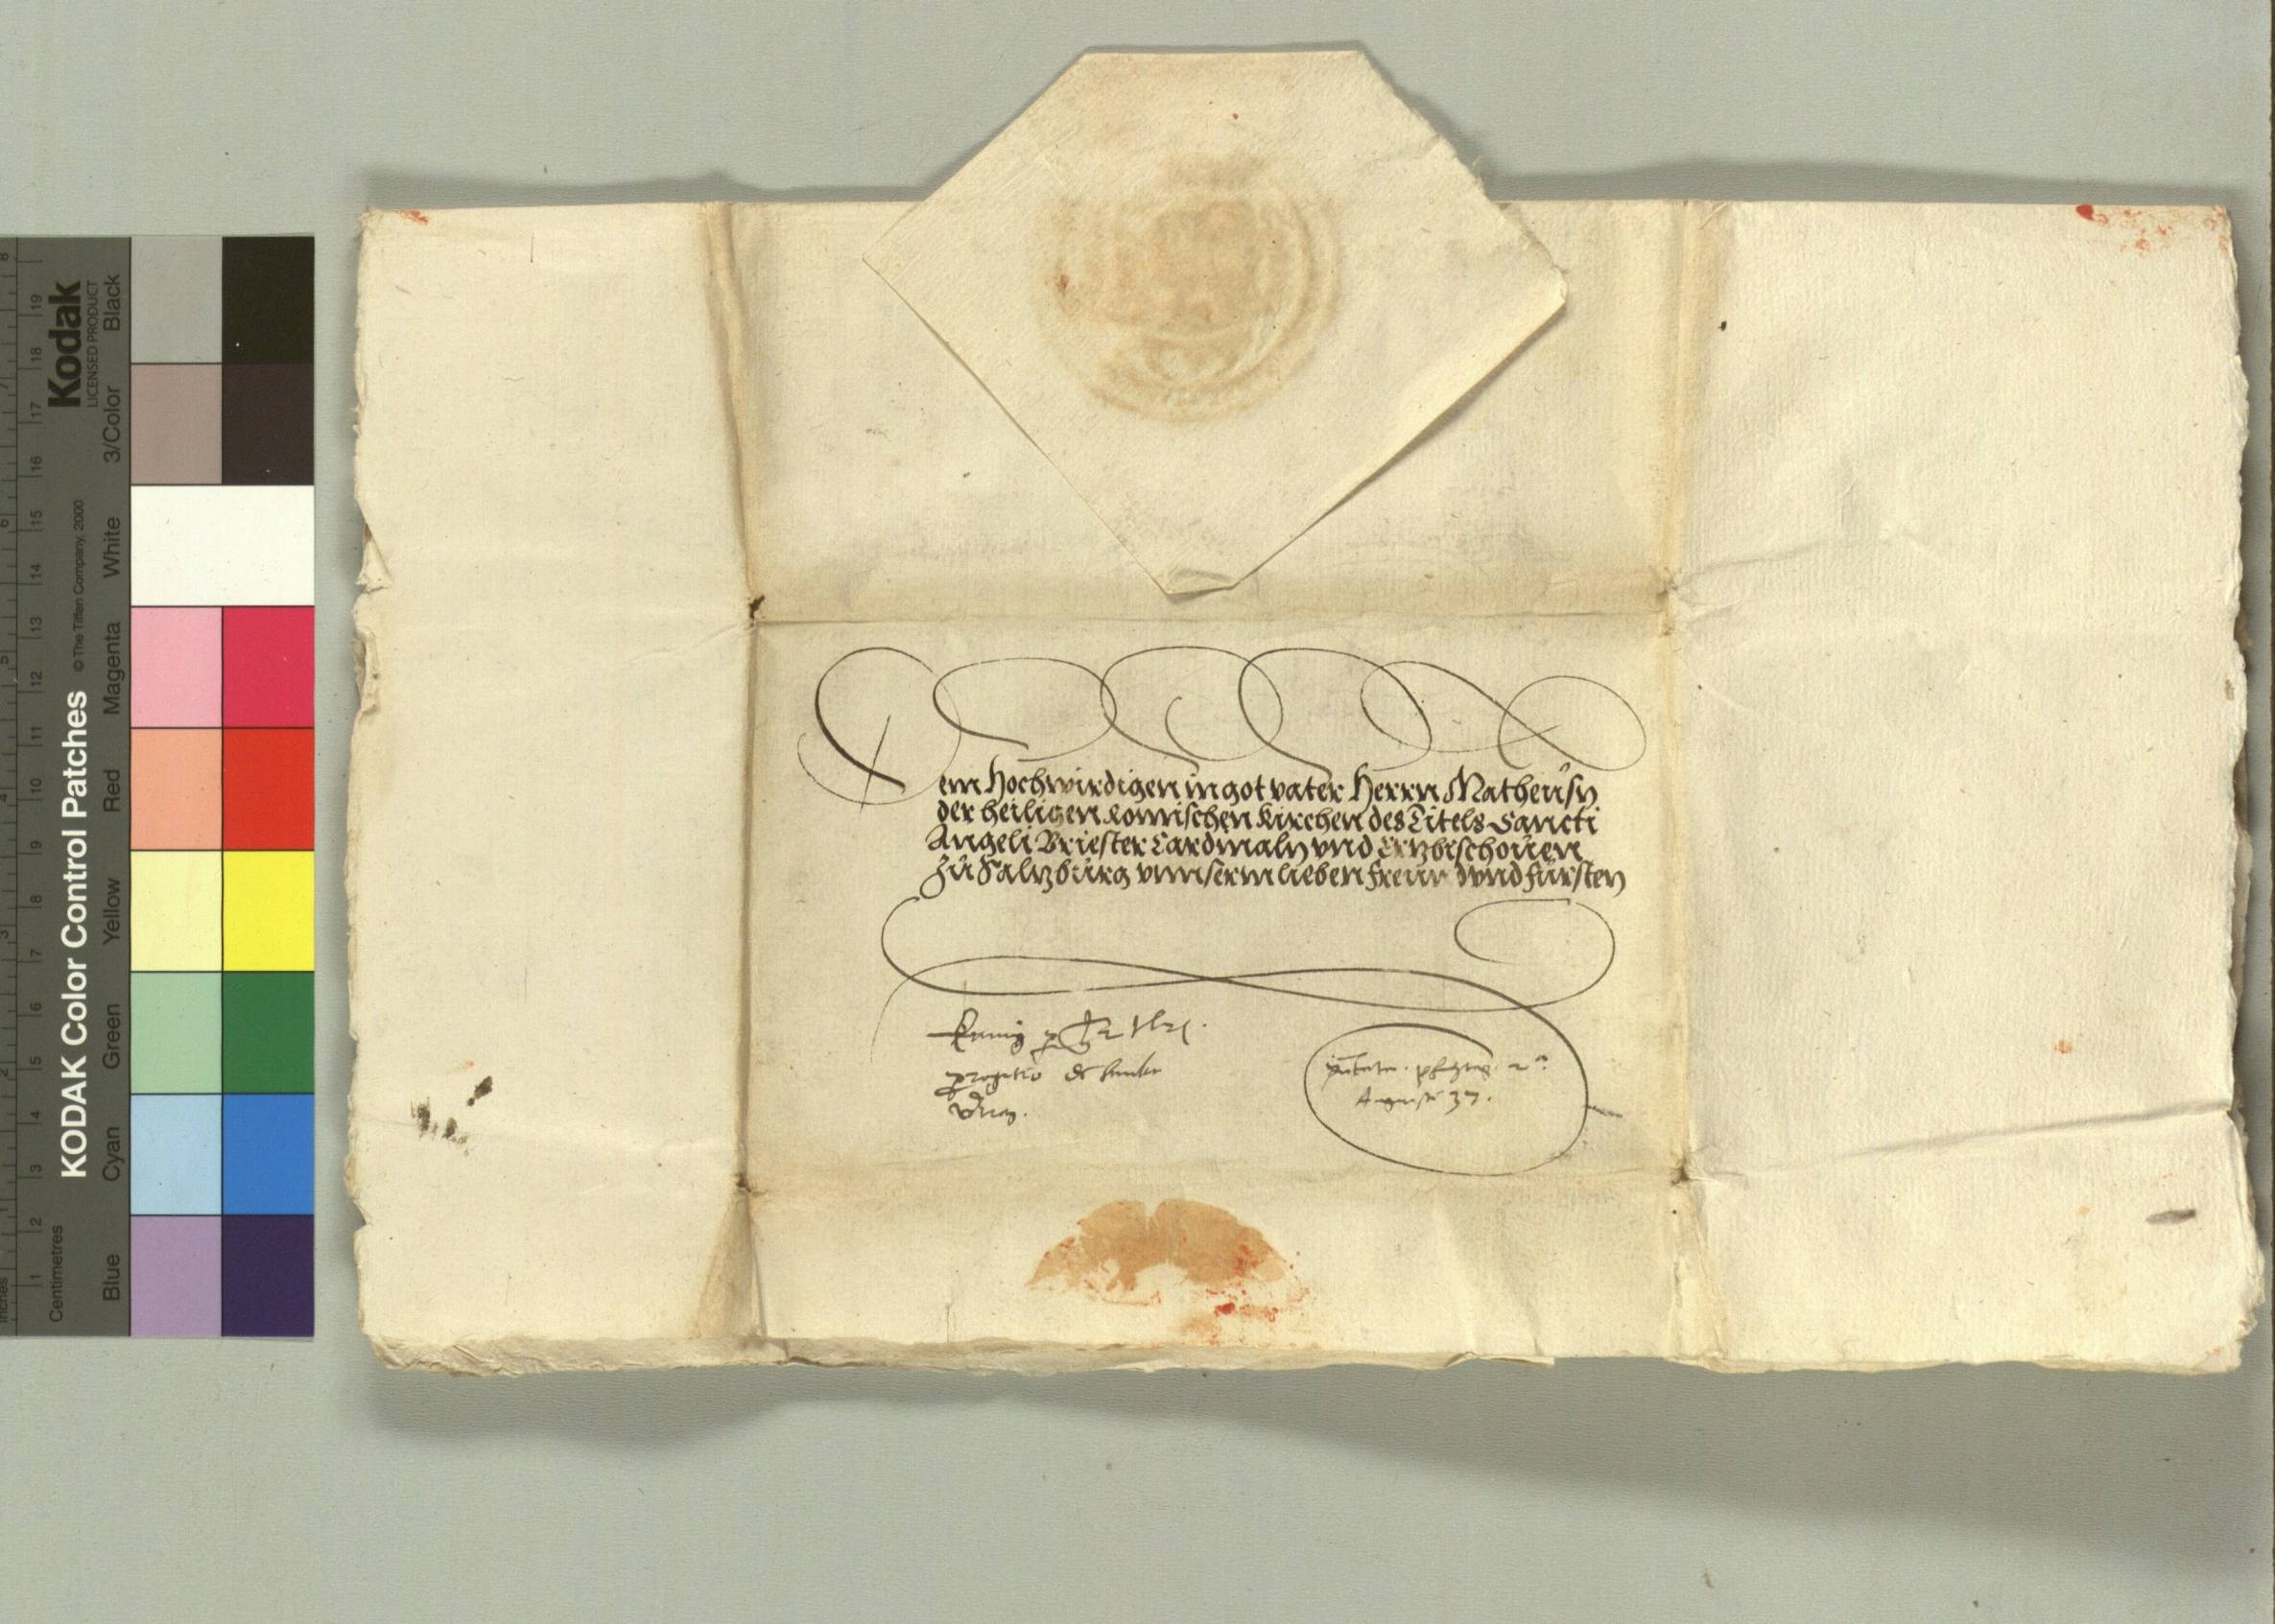 Dem Hochwirdigen in got vater Herrn Matheusn
der heiligen Romischen Kirchen des Titels Sancti
Angeli Briester Cardinaln vnd Ertzbischouen
Zu Saltzburg vnnserm lieben Freundt vnd Fürsten
August 37.
KODAK Color Control Patches
© The Tiffen Company, 2000
Kodak
LICENSED PRODUCT
Centimetres
Inches
Blue
Cyan
Green
Yellow
Red
Magenta
White
3/Color
Black
1 2 3 4 5 6 7 8 9 10 11 12 13 14 15 16 17 18 19